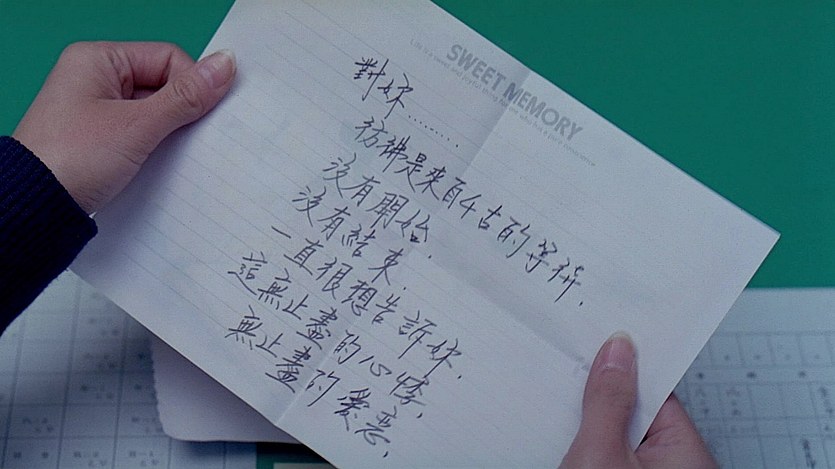 SWEET MEMORY
對妳………
彷彿是來自千古的等待,
沒有開始.
沒有結束.
一直很想告訴妳,
這無止盡的心悸,
無止盡的愛意,